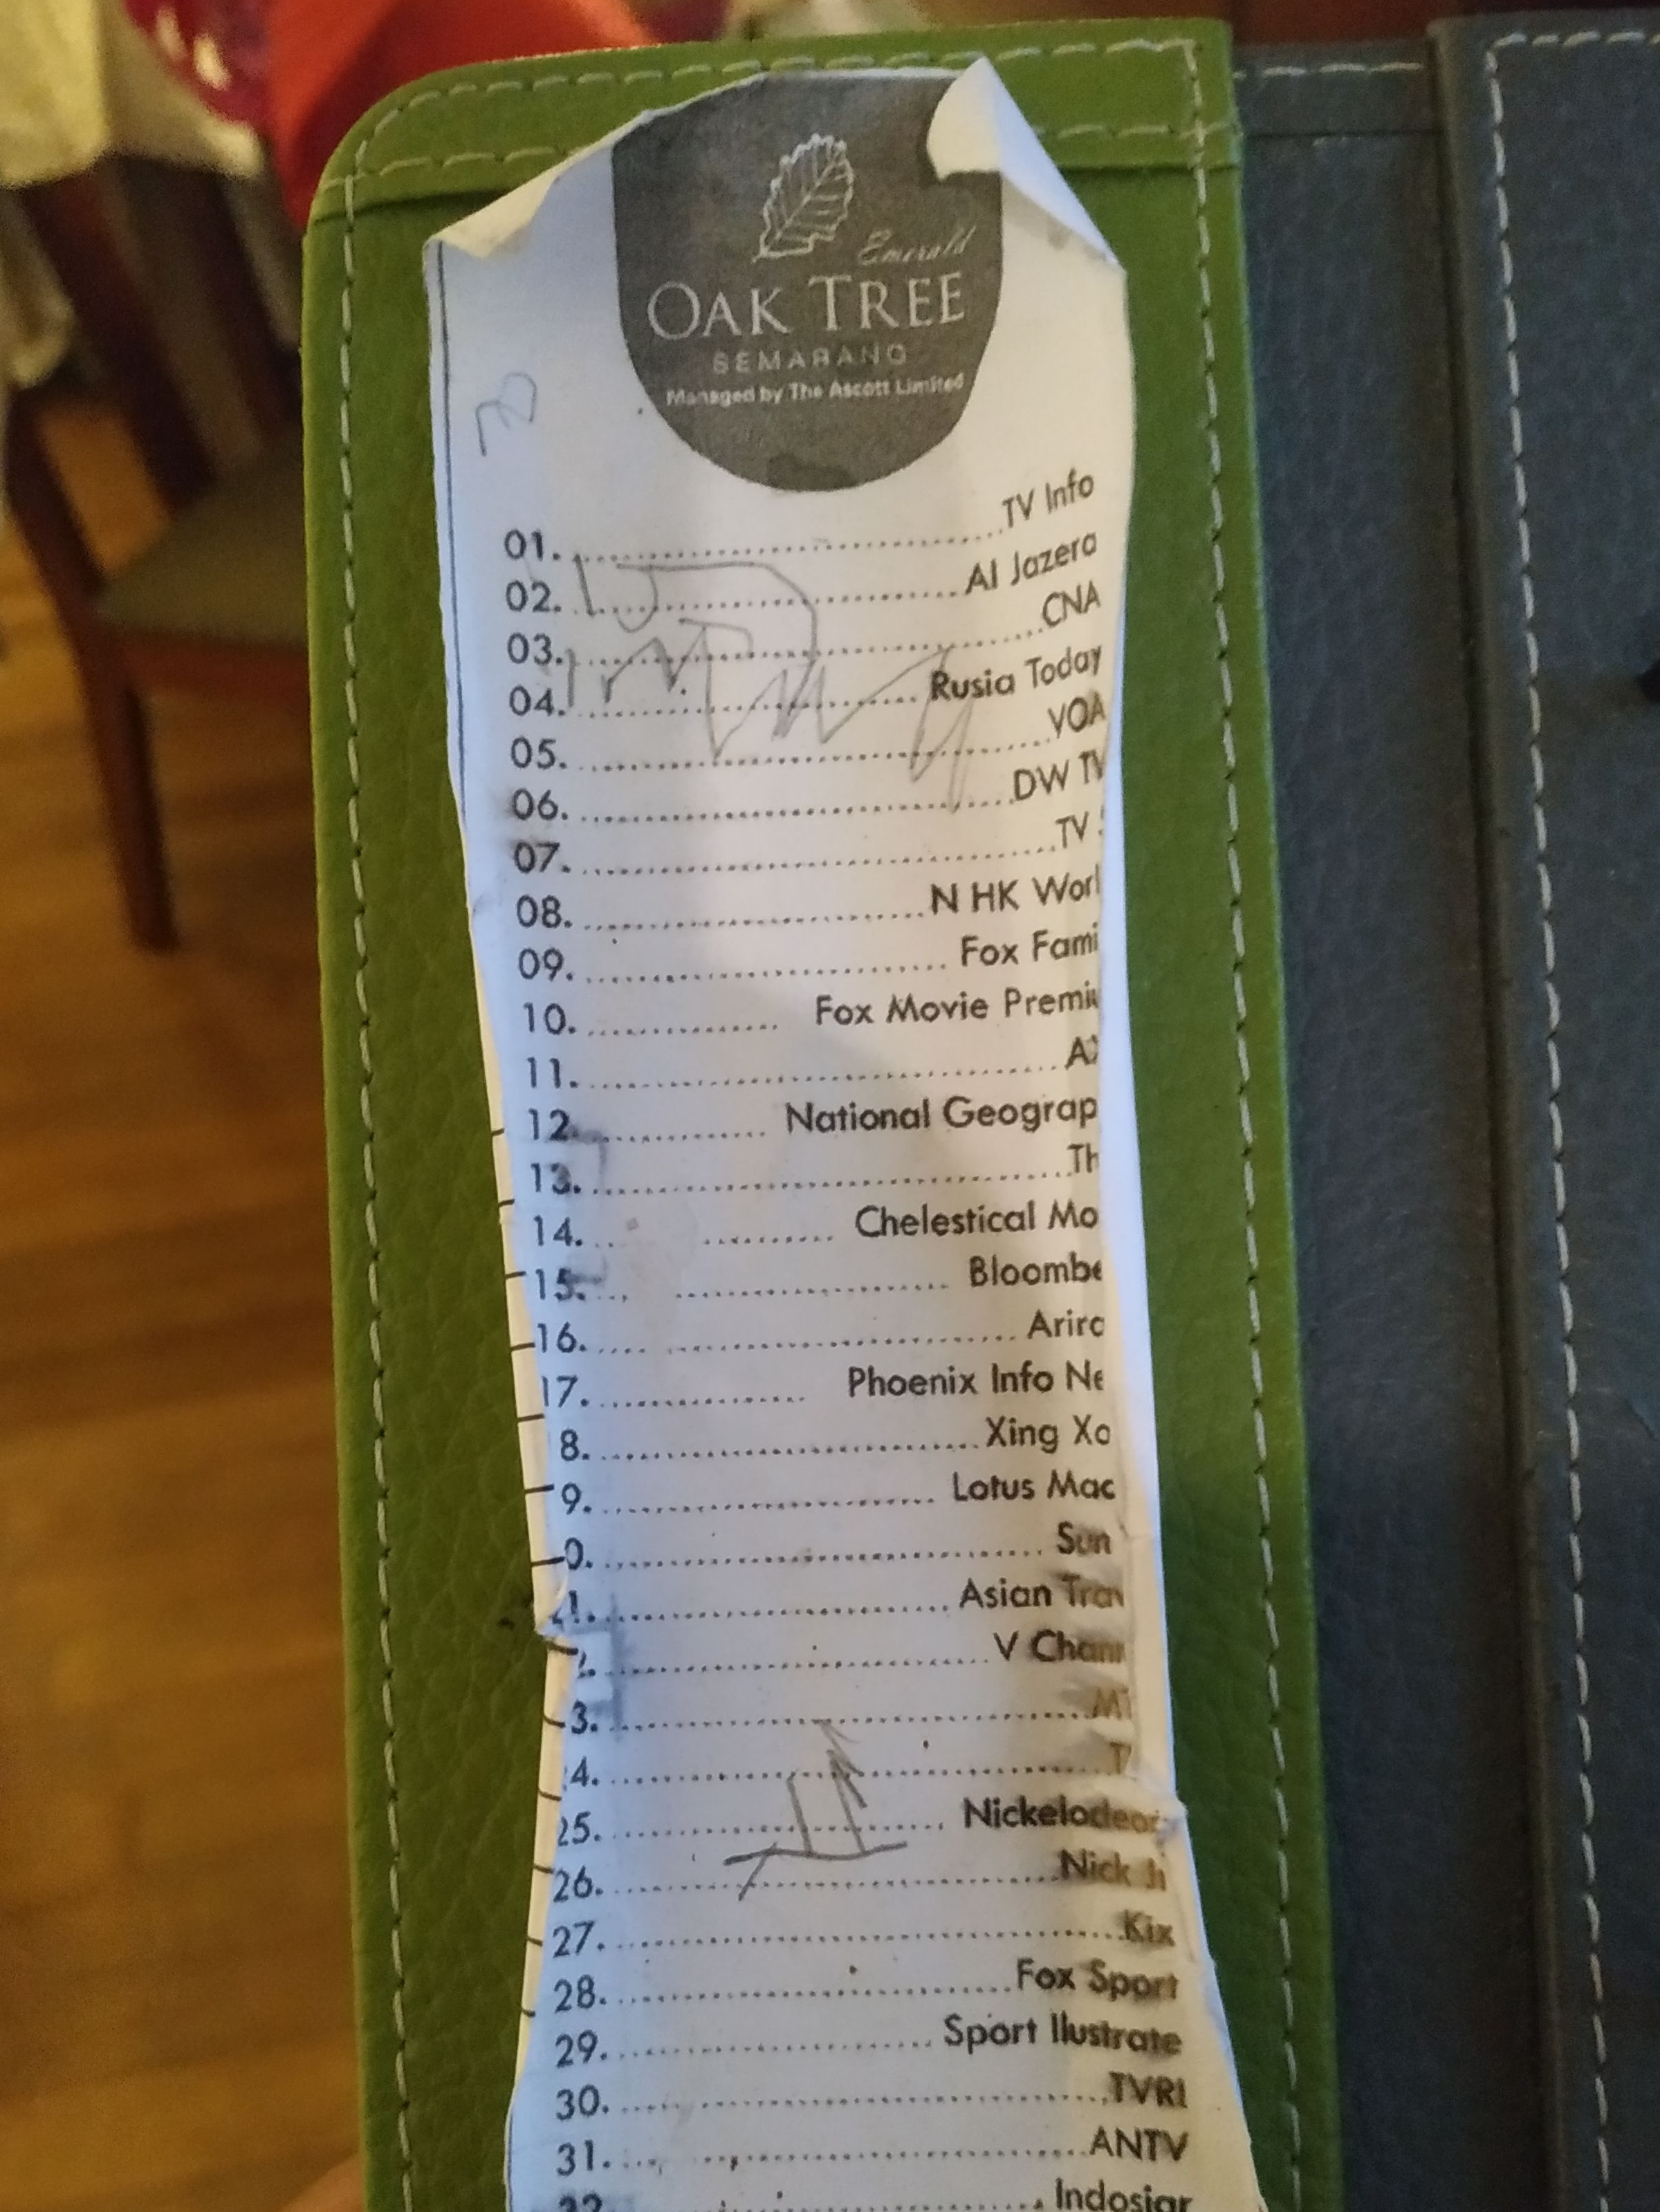 Emerald
OAK TREE
SEMARANG
Managed by The Ascott Limited
01. TV Info
02. Al Jazera
03. CNA
04. Rusia Today
05. VOA
06. DW TV
07. TV
08. N HK Worl
09. Fox Fami
10. Fox Movie Premiu
11. AX
12. National Geograp
13. Th
14. Chelestical Mo
15. Bloombe
16. Arira
17. Phoenix Info Ne
8. Xing Xo
9. Lotus Mac
0. Sun
21. Asian Trav
2. V Chann
3. MT
4. T
25. Nickelodeon
26. Nick Jr
27. Kix
28. Fox Sport
29. Sport Ilustrate
30. TVRI
31. ANTV
32. Indosiar